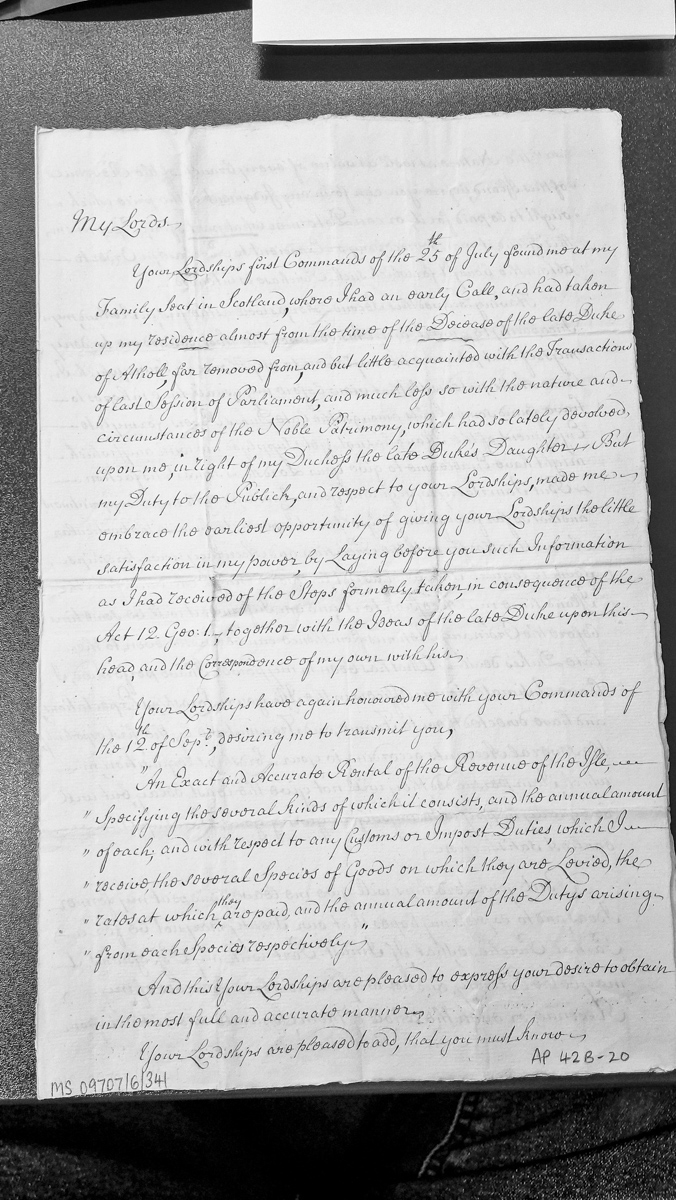 My Lords
Your Lordships first Commands of the 25th of July found me at my
Family Seat in Scotland, where I had an early Call, and had taken
up my residence almost from the time of the Decease of the late Duke
of Atholl, far removed from, and but little acquainted with the Transactions
of last Session of Parliament, and much less so with the nature and
circumstances of the Noble Patrimony, which had so lately devolved,
upon me, in right of my Duchess the late Duke's Daughter. But
my Duty to the Publick, and respect to your Lordships, made me
embrace the earliest opportunity of giving your Lordships the little
satisfaction in my power, by Laying before you such Information
as I had received of the Steps formerly taken in consequence of the
Act 12. Geo: 1. together with the Ideas of the late Duke upon this
head, and the Correspondence of my own with his
Your Lordships have again honoured me with your Commands of
the 12th of Sept., desiring me to transmit you,
"An Exact and Accurate Rental of the Revenue of the Isle,
" Specifying the several kinds of which it consists, and the annual amount
" of each; and with respect to any Customs or Impost Duties, which I
" receive, the several Species of Goods on which they are Levied, the
" rates at which they are paid, and the annual amount of the Dutys arising
" from each Species respectively"
And this Your Lordships are pleased to express your desire to obtain
in the most full and accurate manner
Your Lordships are pleased to add, that you must know
AP 42B-20
MS 09707/6/34/